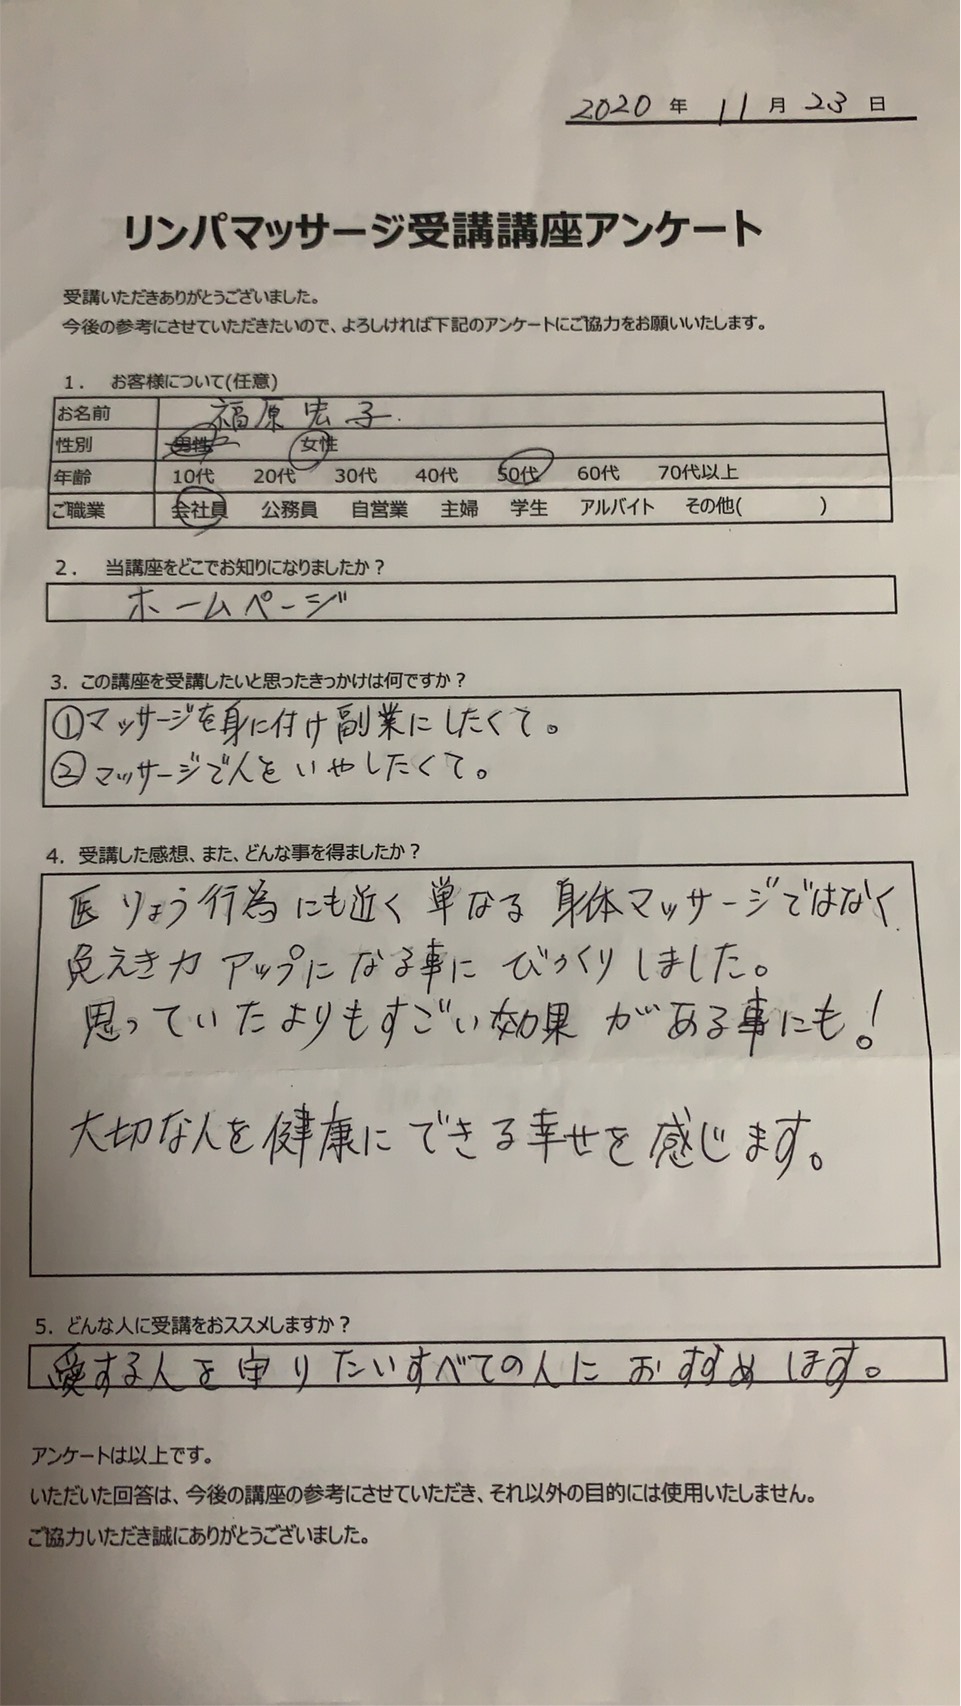 2020 年 11 月 23 日
リンパマッサージ受講講座アンケート
受講いただきありがとうございました。
今後の参考にさせていただきたいので、よろしければ下記のアンケートにご協力をお願いいたします。
1. お客様について(任意)
お名前 福原宏子
性別 男性 女性
年齢 10代 20代 30代 40代 50代 60代 70代以上
ご職業 会社員 公務員 自営業 主婦 学生 アルバイト その他( )
2. 当講座をどこでお知りになりましたか？
ホームページ
3. この講座を受講したいと思ったきっかけは何ですか？
①マッサージを身に付け副業にしたくて。
②マッサージで人をいやしたくて。
4. 受講した感想、また、どんな事を得ましたか？
医りょう行為にも近く単なる身体マッサージではなく
免えき力アップになる事にびっくりしました。
思っていたよりもすごい効果がある事にも！
大切な人を健康にできる幸せを感じます。
5. どんな人に受講をおススメしますか？
愛する人を守りたいすべての人におすすめします。
アンケートは以上です。
いただいた回答は、今後の講座の参考にさせていただき、それ以外の目的には使用いたしません。
ご協力いただき誠にありがとうございました。